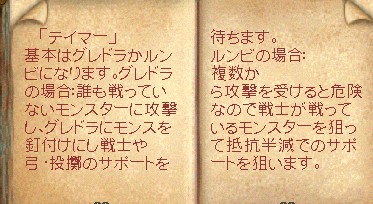 「テイマー」
基本はグレドラかルン
ビになります。グレドラ
の場合:誰も戦ってい
ないモンスターに攻撃
し、グレドラにモンスを
釘付けにし戦士や
弓・投擲のサポートを
待ちます。
ルンビの場合:
複数か
ら攻撃を受けると危険
なので戦士が戦って
いるモンスターを狙っ
て抵抗半減でのサポ
ートを狙います。